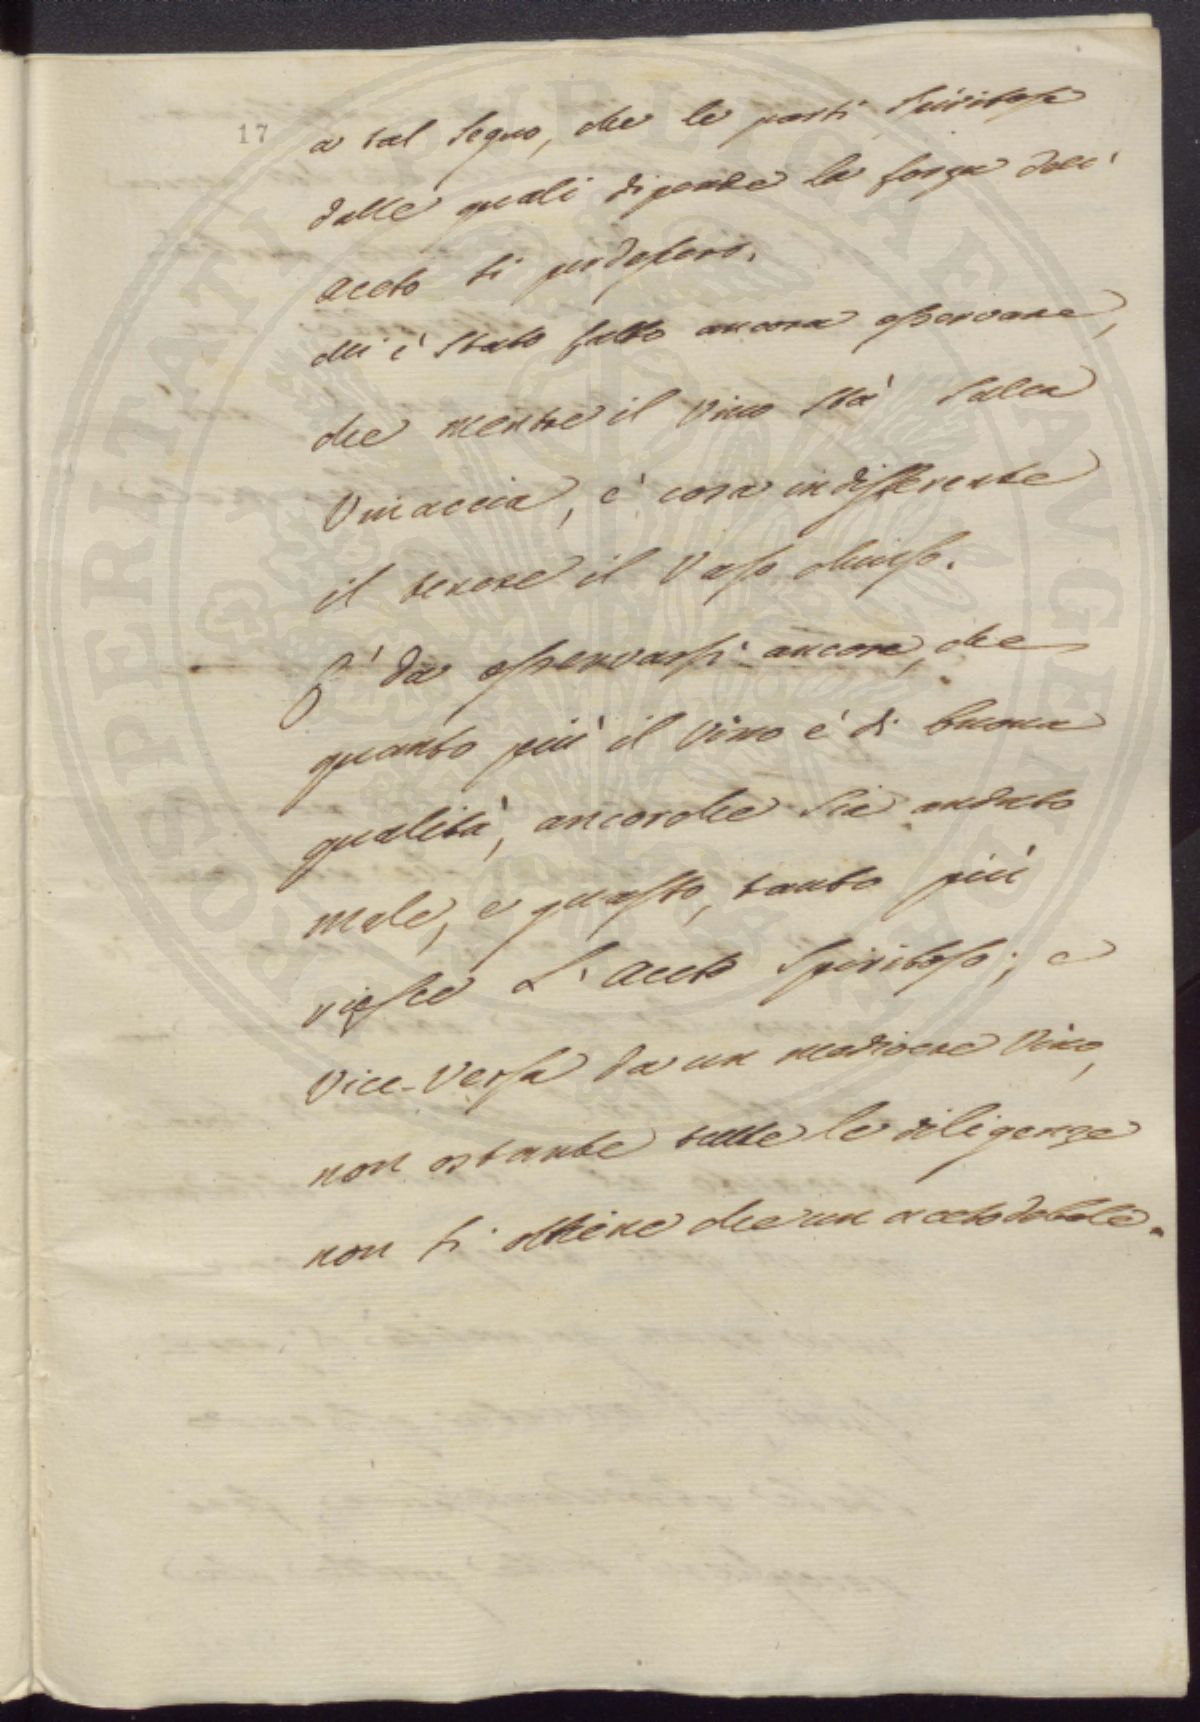 17
a tal segno, che le parti spiritose
dalle quali dipende la forza dell'
aceto si perdessero.
Mi è stato fatto ancora osservare,
che mentre il Vino stà sulla
Vinaccia, è cosa indifferente
il tenere il Vaso chiuso.
E' da osservarsi ancora, che
quanto più il Vino è di buona
qualità, ancorche sia andato
male, e guasto, tanto più
riesce L'Aceto Spiritoso; e
Vice-Versa da un mediocre Vino,
non ostante tutte le diligenze
non si ottiene che un aceto debole.
PROSPERITATI PUBLICAE AUGENDAE